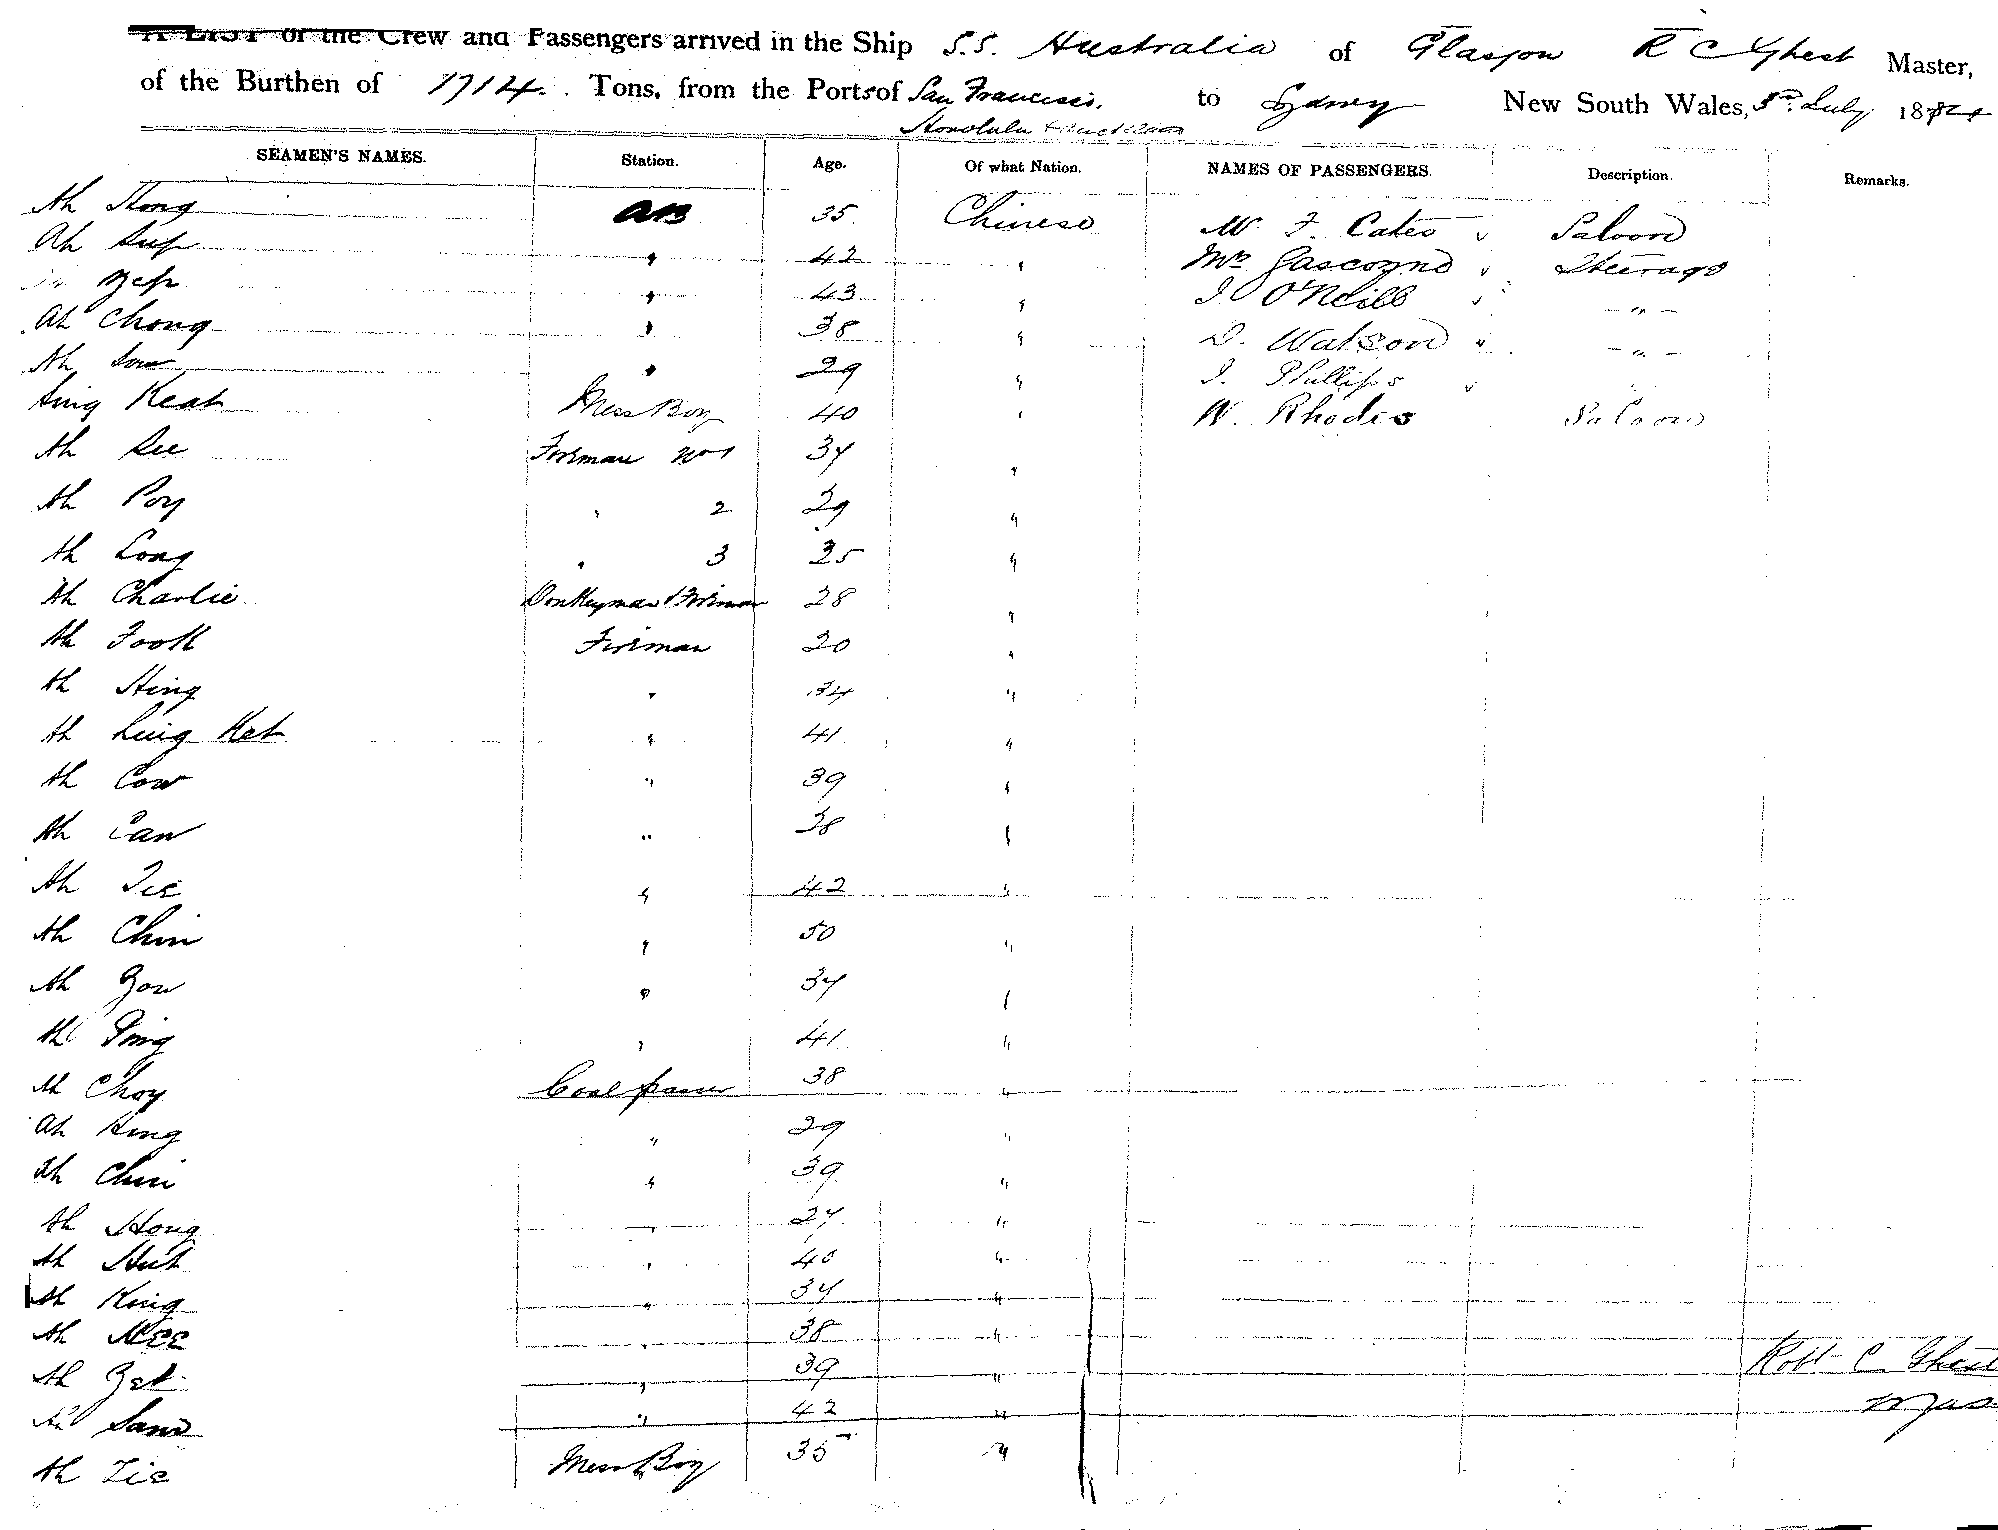 A LIST of the Crew and Passengers arrived in the Ship S.S. Australia of Glasgow R C Ghest Master,
of the Burthen of 1714 Tons, from the Ports of San Francisco, to Sydney New South Wales, July 188
Honolulu & Auckland
SEAMEN'S NAMES. Station. Age. Of what Nation. NAMES OF PASSENGERS. Description. Remarks.
Ah Hong AB 35 Chinese F. Cates Saloon
Ah Sup " 42 " Mr Gascoyne Steerage
Yep " 43 " J O'Neill - " -
Ah Chong " 38 " D. Watson - " -
Ah " 29 " J. Phillips
Sing Keat Mess Boy 40 " W. Rhodes Saloon
Ah See Fireman No 1 34 "
Ah Poy " 2 29 "
Ah Long " 3 35 "
Ah Charlie Donkeyman & Fireman 28 "
Ah Fook Fireman 30 "
Ah Hing " 34 "
Ah Ling Ket " 41 "
Ah Cow " 39 "
Ah Can " 38 "
Ah " 42 "
Ah Chin " 50 "
Ah You " 34 "
Ah Ping " 41 "
Ah Choy Coal passer 38 "
Ah " 29 "
Ah Chin " 39 "
Ah Hong " 27 "
Ah " 40 "
Ah King " 34 "
Ah Mee " 38 "
Ah " 39 " Robt C Ghest
Ah Sam " 42 " Mas
Ah Mess Boy 35 "